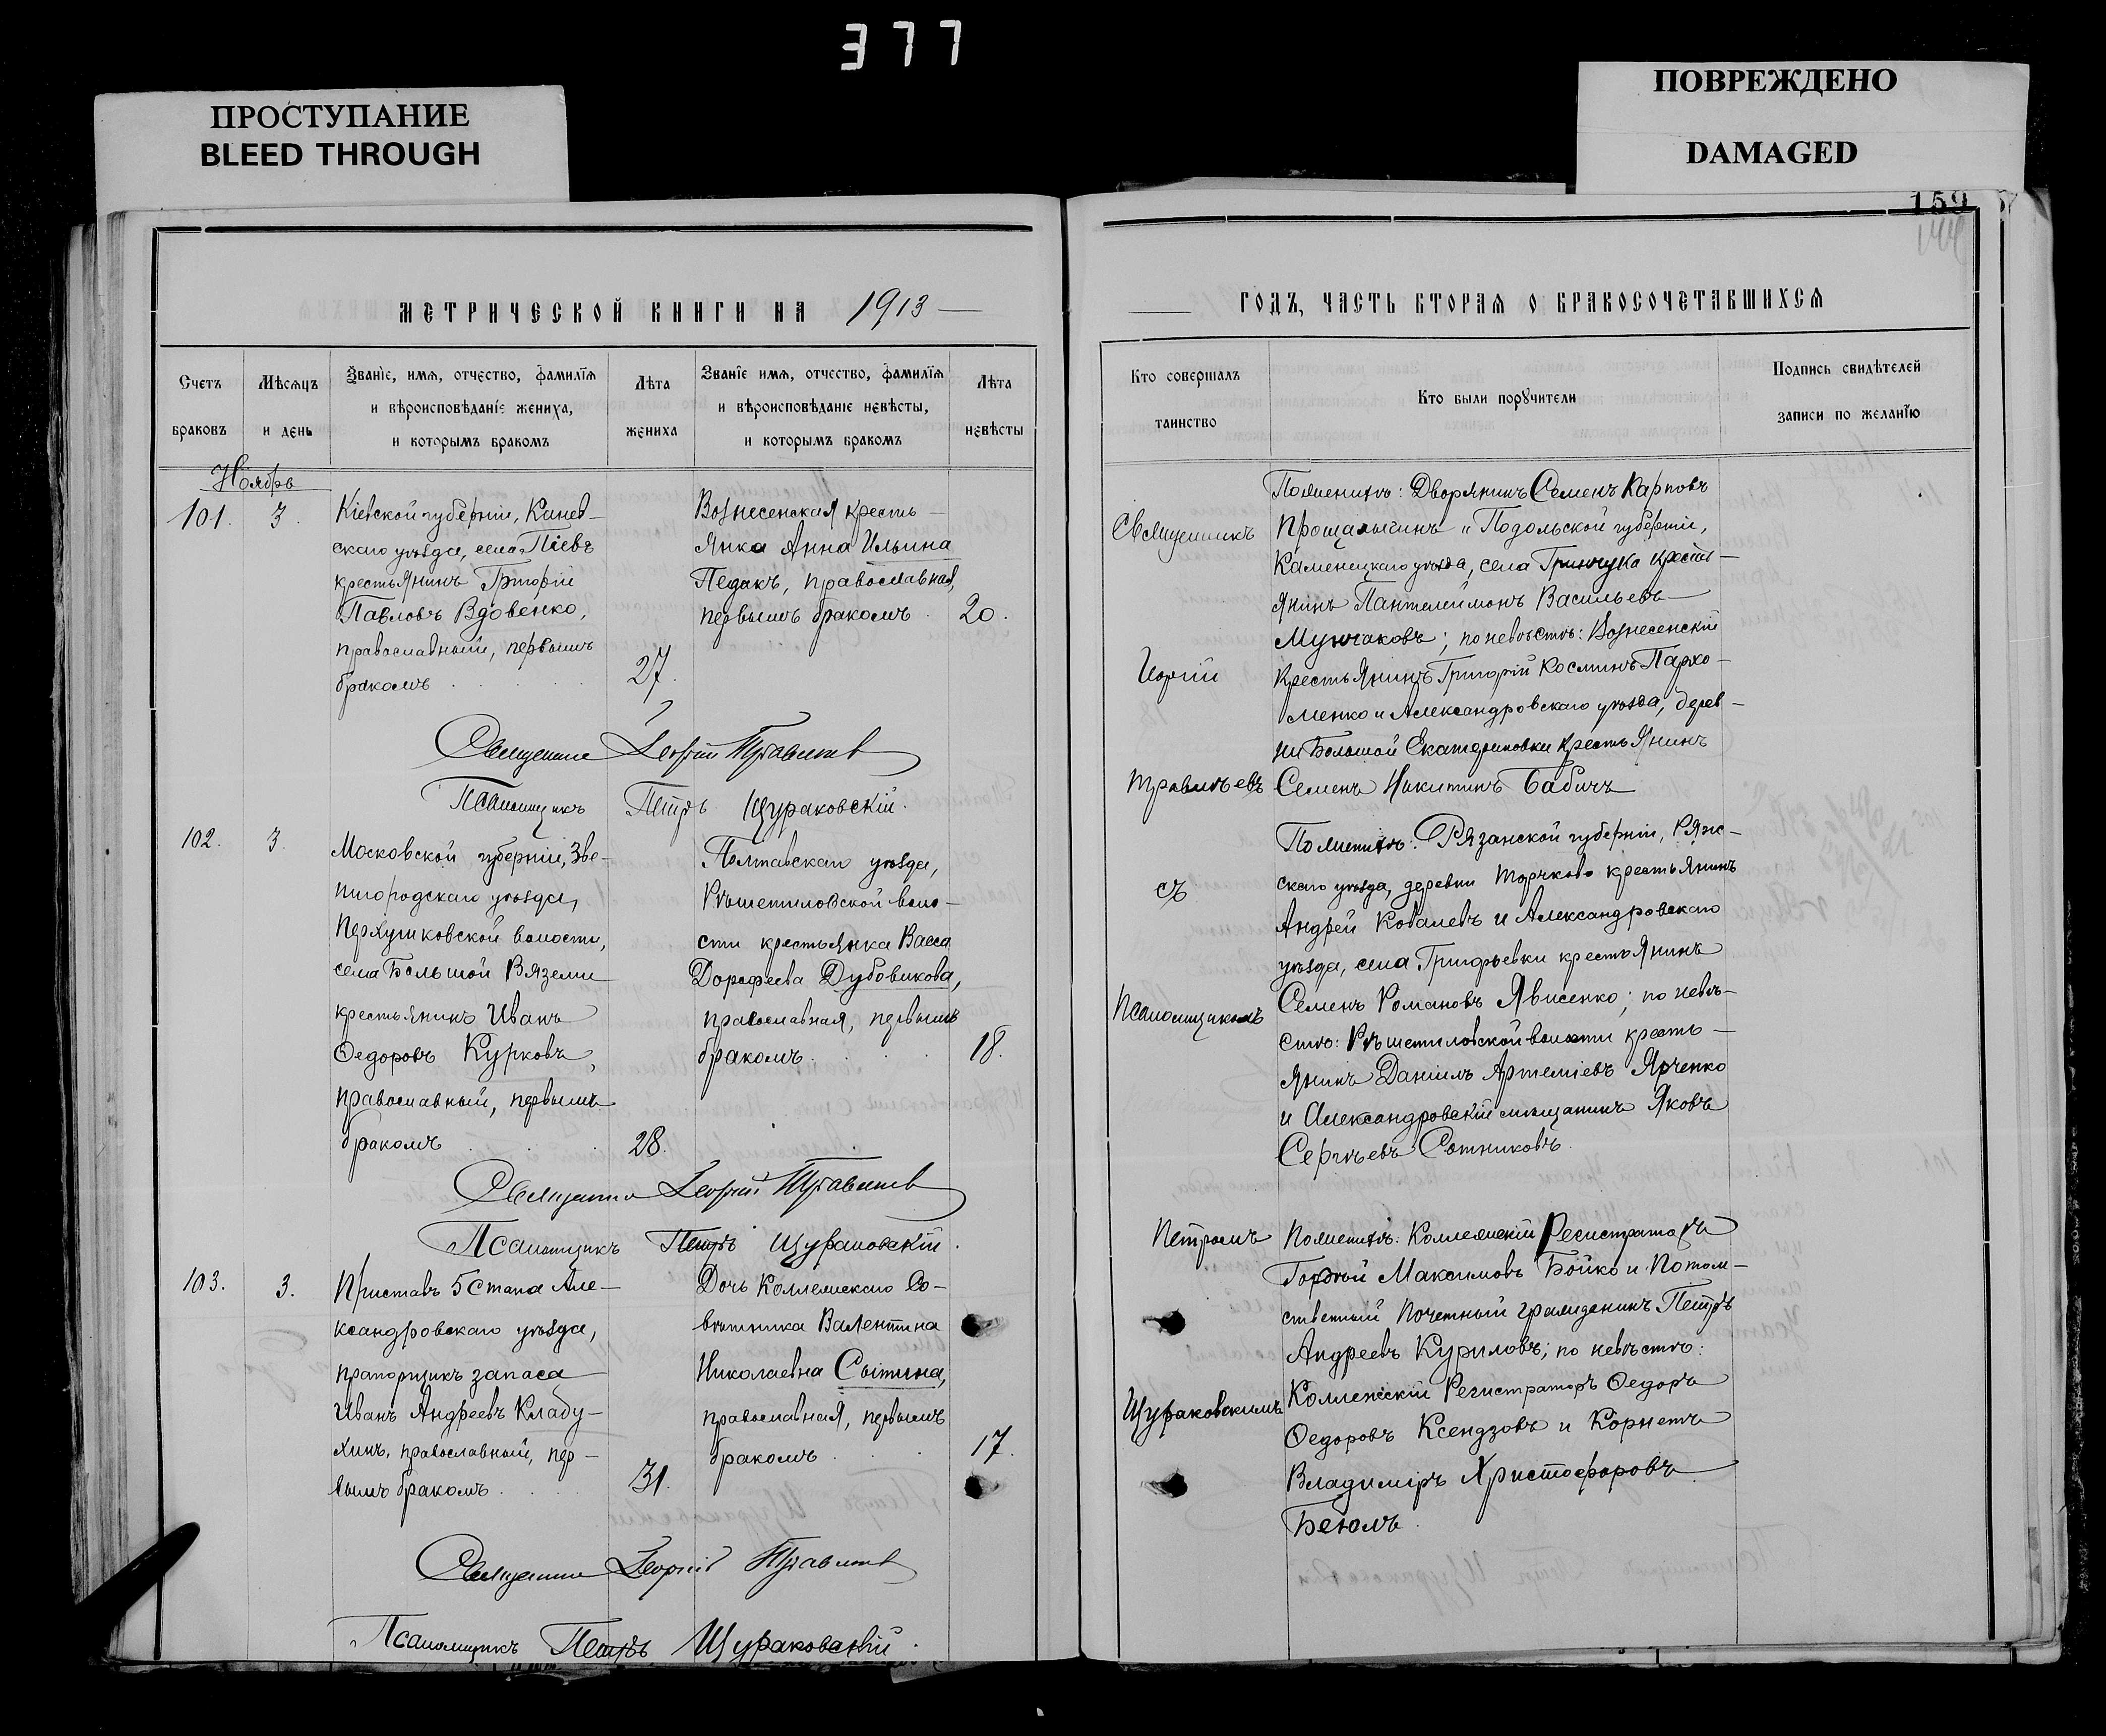 377
ПРОСТУПАНИЕ
BLEED THROUGH
ПОВРЕЖДЕНО
DAMAGED
159
МЕТРИЧЕСКОЙ КНИГИ НА 1913
Счетъ
браковъ
Мѣсяцъ
и день
Званїе, имя, отчество, фамилїя
и вѣроисповѣданїе жениха,
и которымъ бракомъ
Лѣта
жениха
Званїе имя, отчество, фамилїя
и вѣроисповѣданїе невѣсты,
и которымъ бракомъ
Лѣта
невѣсты
Ноябрь
101. 3.
Кіевской губерніи, Канев-
скаго уѣзда, села Піевъ
крестьянинъ Григорій
Павловъ Вдовенко,
православный, первымъ
бракомъ 27.
Вознесенская кресть-
янка Анна Ильина
Педакъ, православная,
первымъ бракомъ 20.
Священникъ Георгій
Псаломщикъ Петръ Щураковскій.
102. 3.
Московской губерніи, Зве-
нигородскаго уѣзда,
Перхушковской волости,
села Большой Вяземи
крестьянинъ Иванъ
Ѳедоровъ Курковъ,
православный, первымъ
бракомъ 28.
Полтавскаго уѣзда,
Рѣшетиловской воло-
сти крестьянка Васса
Дорофеева Дубовикова,
православная, первымъ
бракомъ 18.
Священникъ Георгій
Псаломщикъ Петръ Щураковскій.
103. 3.
Приставъ 5 Стана Але-
ксандровскаго уѣзда,
прапорщикъ запаса
Иванъ Андреевъ Кладу-
хинъ, православный, пер-
вымъ бракомъ 31.
Дочь Коллежскаго Со-
вѣтника Валентина
Николаевна Сытина,
православная, первымъ
бракомъ 17.
Священникъ Георгій
Псаломщикъ Петръ Щураковскій.
ГОДЪ, ЧАСТЬ ВТОРАЯ О БРАКОСОЧЕТАВШИХСЯ
Кто совершалъ
таинство
Кто были порꙋчители
Подпись свидѣтелей
записи по желанїю
Священникъ
съ
Псаломщикомъ
Петромъ
Щураковскимъ
По женихѣ: Дворянинъ Семенъ Карповъ
и Подольской губерніи,
Каменецкаго уѣзда, села Гринчука кресть-
янинъ Пантелеймонъ Васильевъ
Мунчаковъ; по невѣстѣ: Вознесенскій
крестьянинъ Григорій Косминъ Пархо-
менко и Александровскаго уѣзда, дерев-
ни Большой Екатериновки крестьянинъ
Семенъ Никитинъ Бабичъ
По женихѣ: Рязанской губерніи, Ряж-
скаго уѣзда, деревни крестьянинъ
Андрей Ковалевъ и Александровскаго
уѣзда, села Григорьевки крестьянинъ
Семенъ Романовъ Явисенко; по невѣ-
стѣ: Рѣшетиловской волости кресть-
янинъ Даніилъ Артеміевъ Ярченко
и Александровскій мѣщанинъ Яковъ
Сергѣевъ Сотниковъ.
По женихѣ: Коллежскій Регистраторъ
Гордѣй Максимовъ Бойко и Потом-
ственный Почетный гражданинъ Петръ
Андреевъ Куриловъ; по невѣстѣ:
Коллежскій Регистраторъ Ѳедоръ
Ѳедоровъ Ксендзовъ и Корнетъ
Владиміръ Христофоровъ